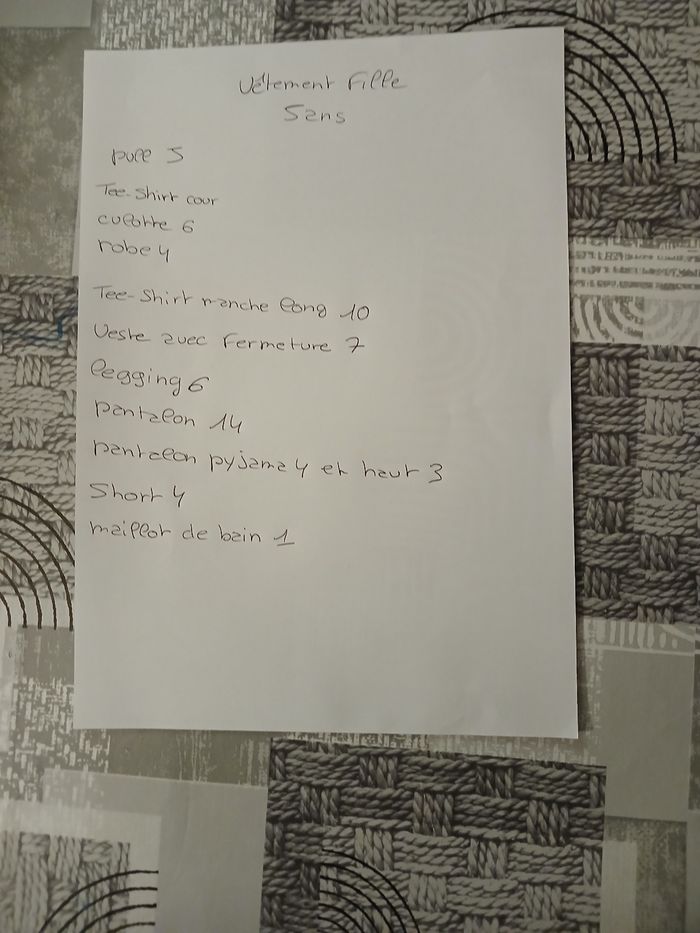 Vêtement Fille
5ans
pull 5
Tee-Shirt cour
culotte 6
robe 4
Tee-Shirt manche long 10
Veste avec Fermeture 7
legging 6
pantalon 14
pantalon pyjama 4 et haut 3
Short 4
maillot de bain 1